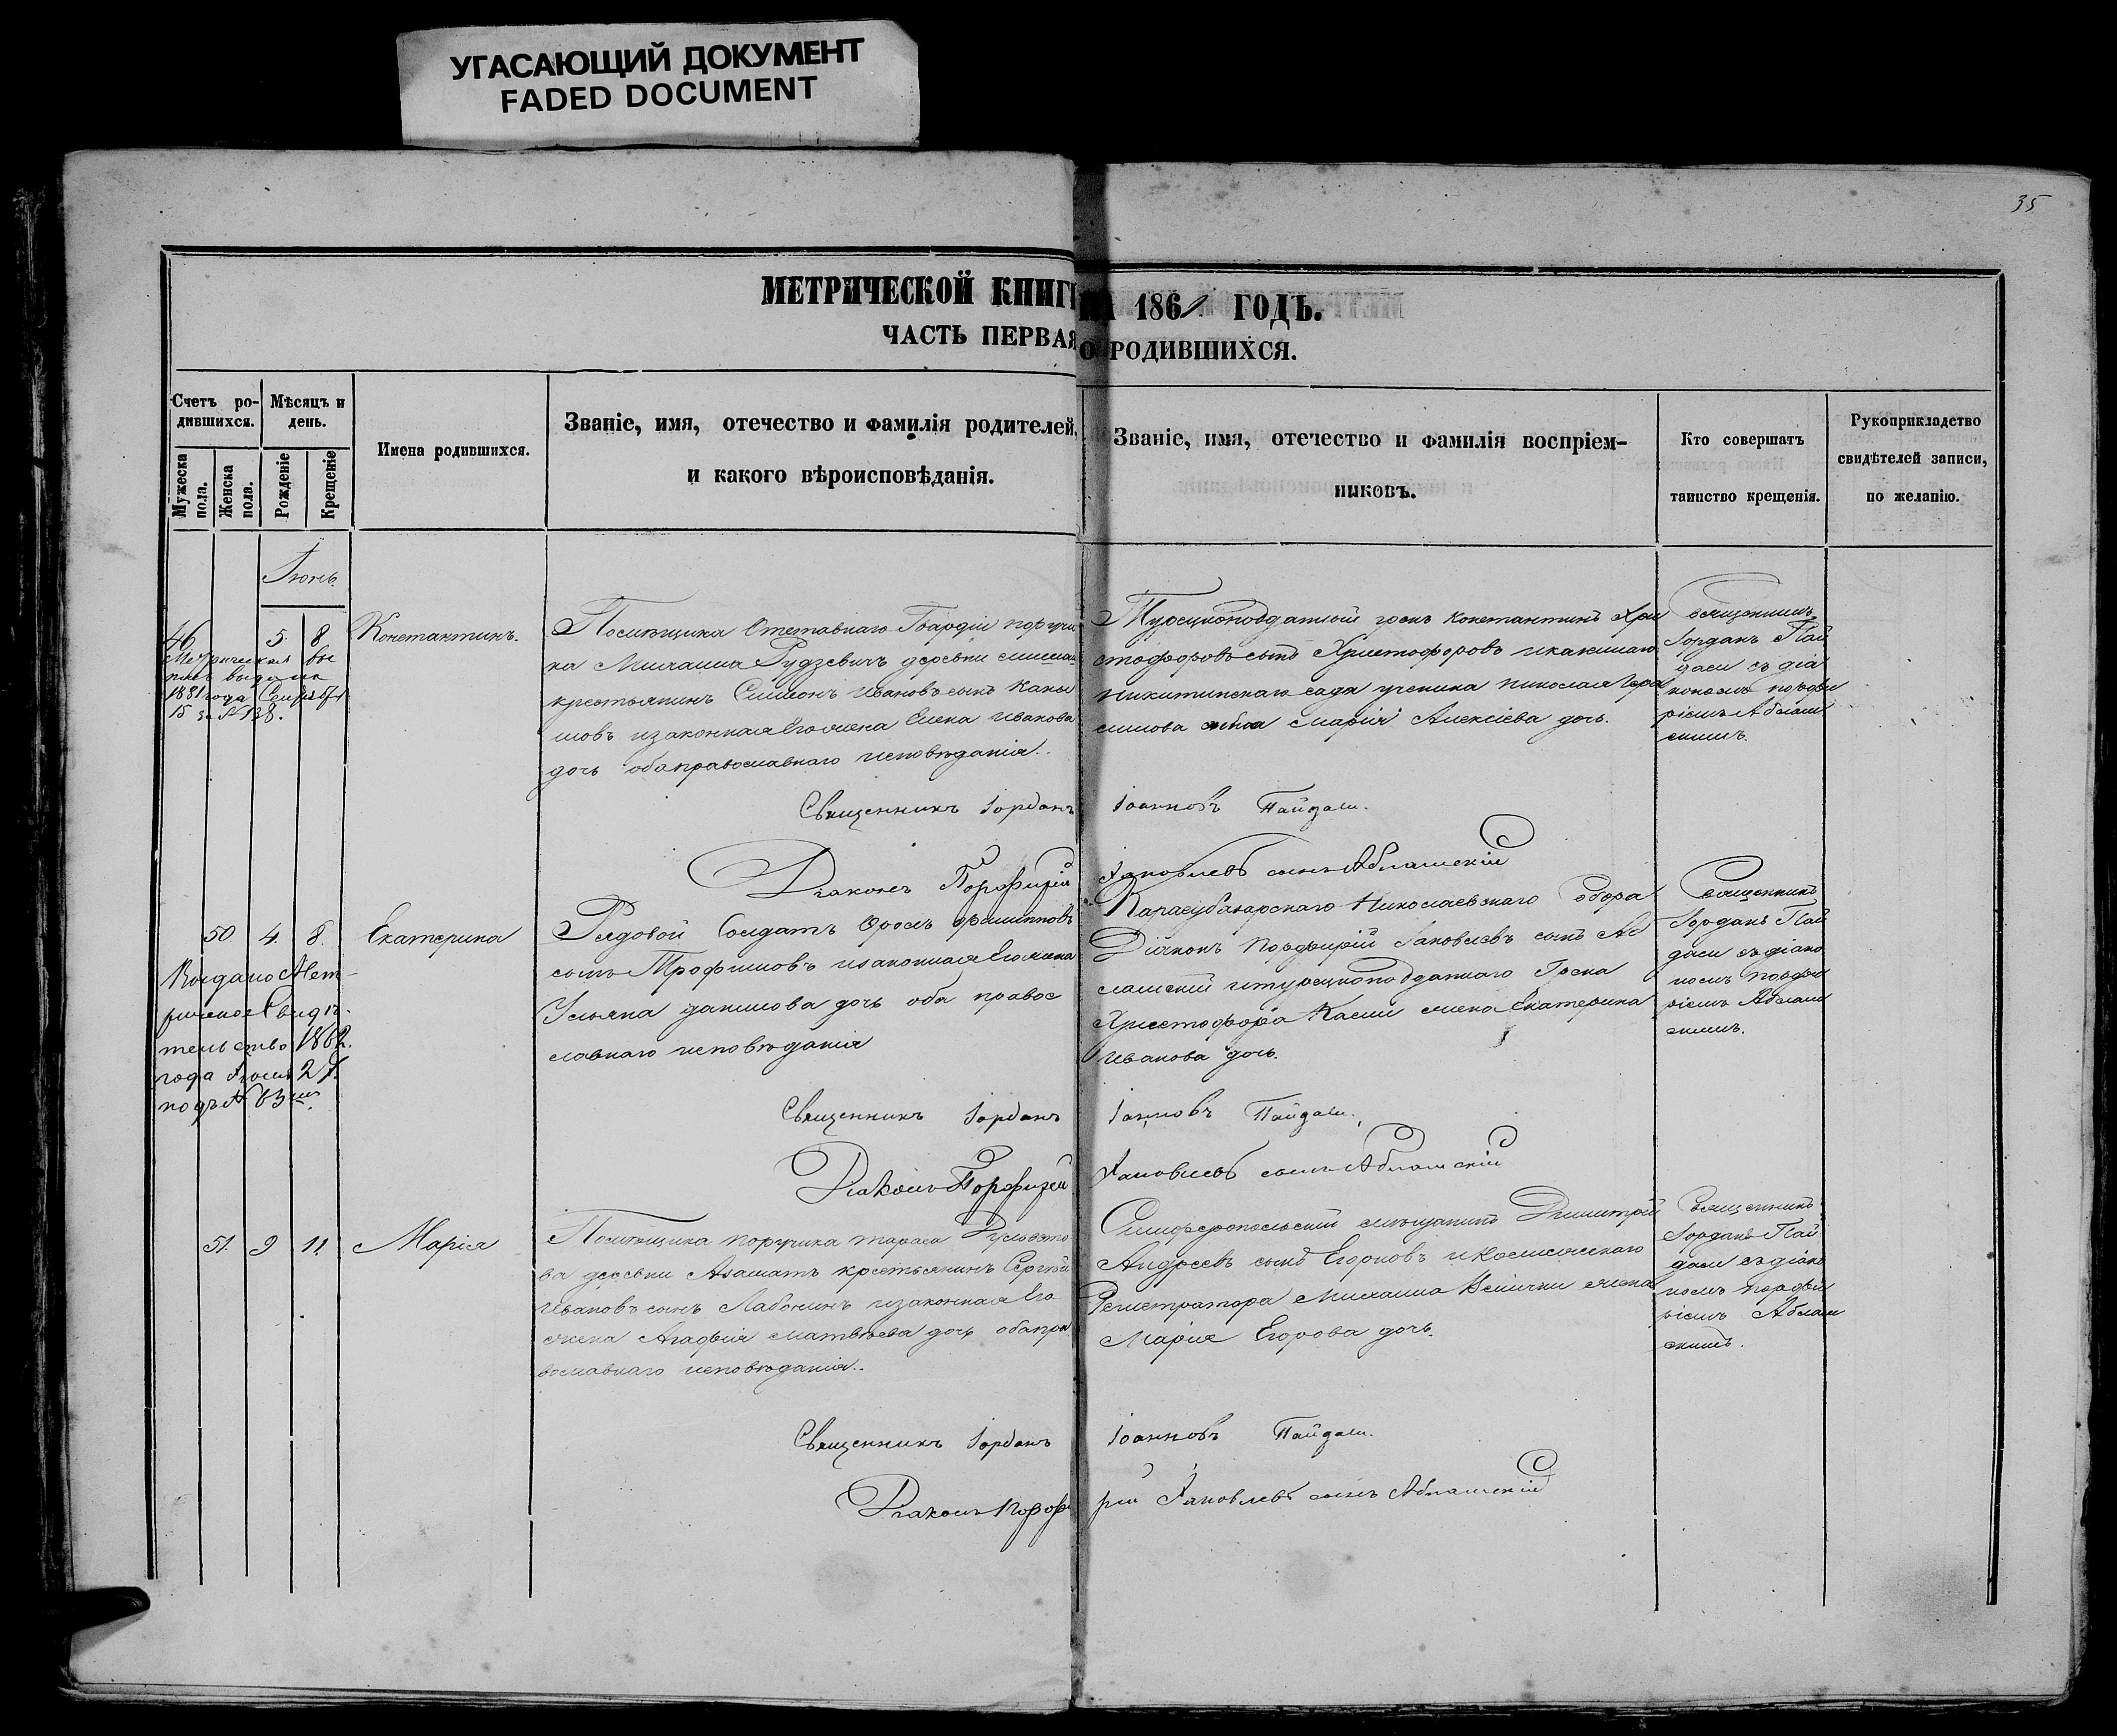 УГАСАЮЩИЙ ДОКУМЕНТ
FADED DOCUMENT
35
МЕТРИЧЕСКОЙ КНИГИ НА 1861 ГОДЪ.
ЧАСТЬ ПЕРВАЯ О РОДИВШИХСЯ.
Счетъ ро-
дившихся.
Мужеска
пола.
Женска
пола.
Мѣсяцъ и
день.
Рожденіе
Крещеніе
Имена родившихся.
Званіе, имя, отечество и фамилія родителей,
и какого вѣроисповѣданія.
Званіе, имя, отечество и фамилія воспріем-
никовъ.
Кто совершатъ
таинство крещенія.
Рукоприкладство
свидѣтелей записи,
по желанію.
Іюнь.
46
5. 8.
Метрическая вы
пись выдана
1881 года
15 за № 138.
Константинъ.
Помѣщика Отставнаго Гвардіи поручи
ка Михаила Рудзевичъ деревни
крестьянинъ Симіонъ Ивановъ сынъ
изаконная Его жена Елена Иванова
дочь оба православнаго исповѣданія.
Турецкоподданный грекъ Константинъ Хри
стофоровъ сынъ Христофоровъ
Никитинскаго сада ученика Николая Гера
симова жена Марія Алексіева дочь.
Священникъ
Іорданъ Пай
даси съ діа
кономъ Порфи
ріемъ Аблам
скимъ.
Священникъ Іорданъ Іоанновъ Пайдаси.
Діаконъ Порфирій Іаковлевъ сынъ Абламскій
50 4. 8.
Выдано Мет-
рическое Свидѣ-
тельство 1862.
года
подъ № 63
Екатерина
Рядовой Солдатъ Фролъ Филипповъ
сынъ Трофимовъ изаконная Его жена
Ульяна Данилова дочь оба правос
славнаго исповѣданія
Карасубазарскаго Николаевскаго собора
Діаконъ Порфирій Іаковлевъ сынъ Аб
ламскій итурецкоподданнаго Грека
Христофора жена Екатерина
Иванова дочь.
Священникъ
Іорданъ Пай
даси съ діако
номъ Порфи
ріемъ Аблам
скимъ.
Священникъ Іорданъ Іоанновъ Пайдаси.
Діаконъ Порфирій Іаковлевъ сынъ Абламскій
51. 9 11.
Марія
Помѣщика поручика Тараса
ва деревни Азаматъ крестьянинъ Сергѣй
Ивановъ сынъ Лабокинъ изаконная Его
жена Агафія Матвѣева дочь оба пра
вославнаго исповѣданія.
Симферопольскій мѣщанинъ Димитрій
Андреевъ сынъ Егоровъ иколлежскаго
Регистратора Михаила жена
Марія Егорова дочь.
Священникъ
Іорданъ Пай
даси съ діако
номъ Порфи
ріемъ Аблам
скимъ.
Священникъ Іорданъ Іоанновъ Пайдаси.
Діаконъ Порфирій Іаковлевъ сынъ Абламскій